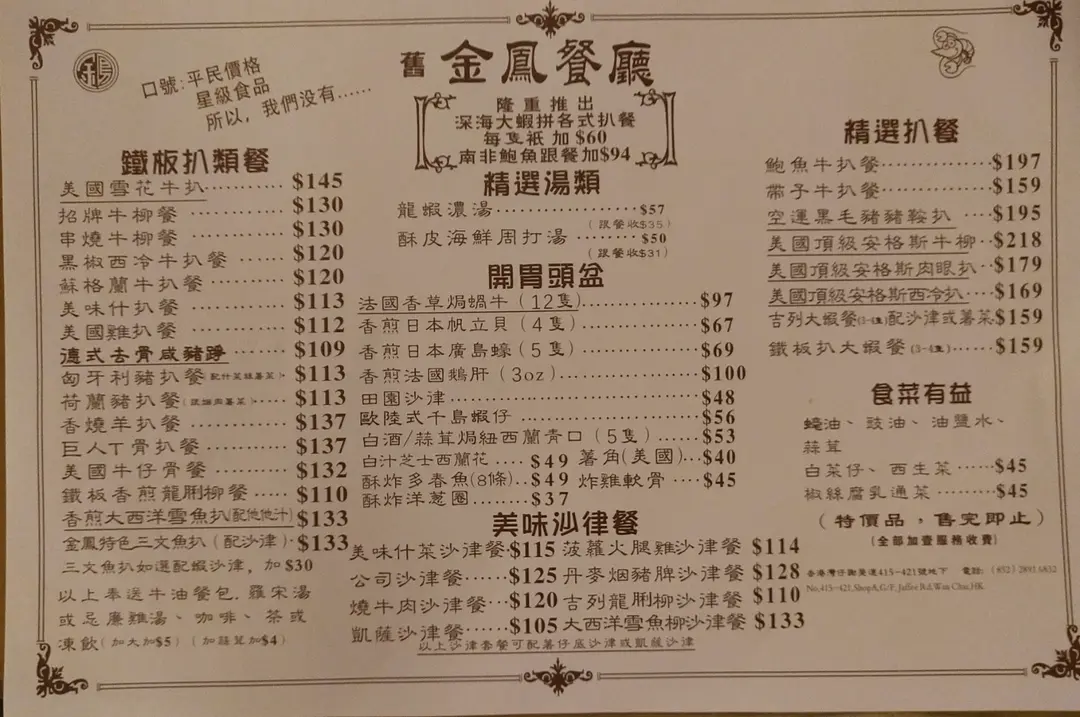 口號:平民價格
星級食品
所以，我們没有......
舊 金鳳餐廳
隆重推出
深海大蝦拼各式扒餐
每隻祇加$60
南非鮑魚跟餐加$94
鐵板扒類餐
美國雪花牛扒 $145
招牌牛柳餐 $130
串燒牛柳餐 $130
黑椒西冷牛扒餐 $120
蘇格蘭牛扒餐 $120
美味什扒餐 $113
美國雞扒餐 $112
德式去骨咸豬蹄 $109
匈牙利豬扒餐 $113
荷蘭豬扒餐 $113
香燒羊扒餐 $137
巨人T骨扒餐 $137
美國牛仔骨餐 $132
鐵板香煎龍脷柳餐 $110
香煎大西洋雪魚扒(配他他汁) $133
金鳳特色三文魚扒(配沙律) $133
三文魚扒如選配蝦沙律，加$30
以上奉送牛油餐包，羅宋湯
或忌廉雞湯、咖啡、茶或
凍飲(加大加$5) (加蒜茸加$4)
精選湯類
龍蝦濃湯 $57
(跟餐收$35)
酥皮海鮮周打湯 $50
(跟餐收$31)
開胃頭盆
法國香草焗蝸牛(12隻) $97
香煎日本帆立貝(4隻) $67
香煎日本廣島蠔(5隻) $69
香煎法國鵝肝(3oz) $100
田園沙律 $48
歐陸式千島蝦仔 $56
白酒/蒜茸焗紐西蘭青口(5隻) $53
白汁芝士西蘭花 $49 薯角(美國) $40
酥炸多春魚(8條) $49 炸雞軟骨 $45
酥炸洋蔥圈 $37
美味沙律餐
美味什菜沙律餐 $115 菠蘿火腿雞沙律餐 $114
公司沙律餐 $125 丹麥烟豬脾沙律餐 $128
燒牛肉沙律餐 $120 吉列龍脷柳沙律餐 $110
凱薩沙律餐 $105 大西洋雪魚柳沙律餐 $133
以上沙律套餐可配薯仔底沙律或凱薩沙律
精選扒餐
鮑魚牛扒餐 $197
帶子牛扒餐 $159
空運黑毛豬豬鞍扒 $195
美國頂級安格斯牛柳 $218
美國頂級安格斯肉眼扒 $179
美國頂級安格斯西冷扒 $169
吉列大蝦餐(3-4隻)配沙律或薯菜 $159
鐵板扒大蝦餐(3-4隻) $159
食菜有益
蠔油、豉油、油鹽水、
蒜茸
白菜仔、西生菜 $45
椒絲腐乳通菜 $45
(特價品，售完即止)
(全部加壹服務收費)
香港灣仔謝斐道415-421號地下 電話: (852) 2891 6832
No.415-421,ShopA,G/F, Jaffee Rd,Wan Chai,HK